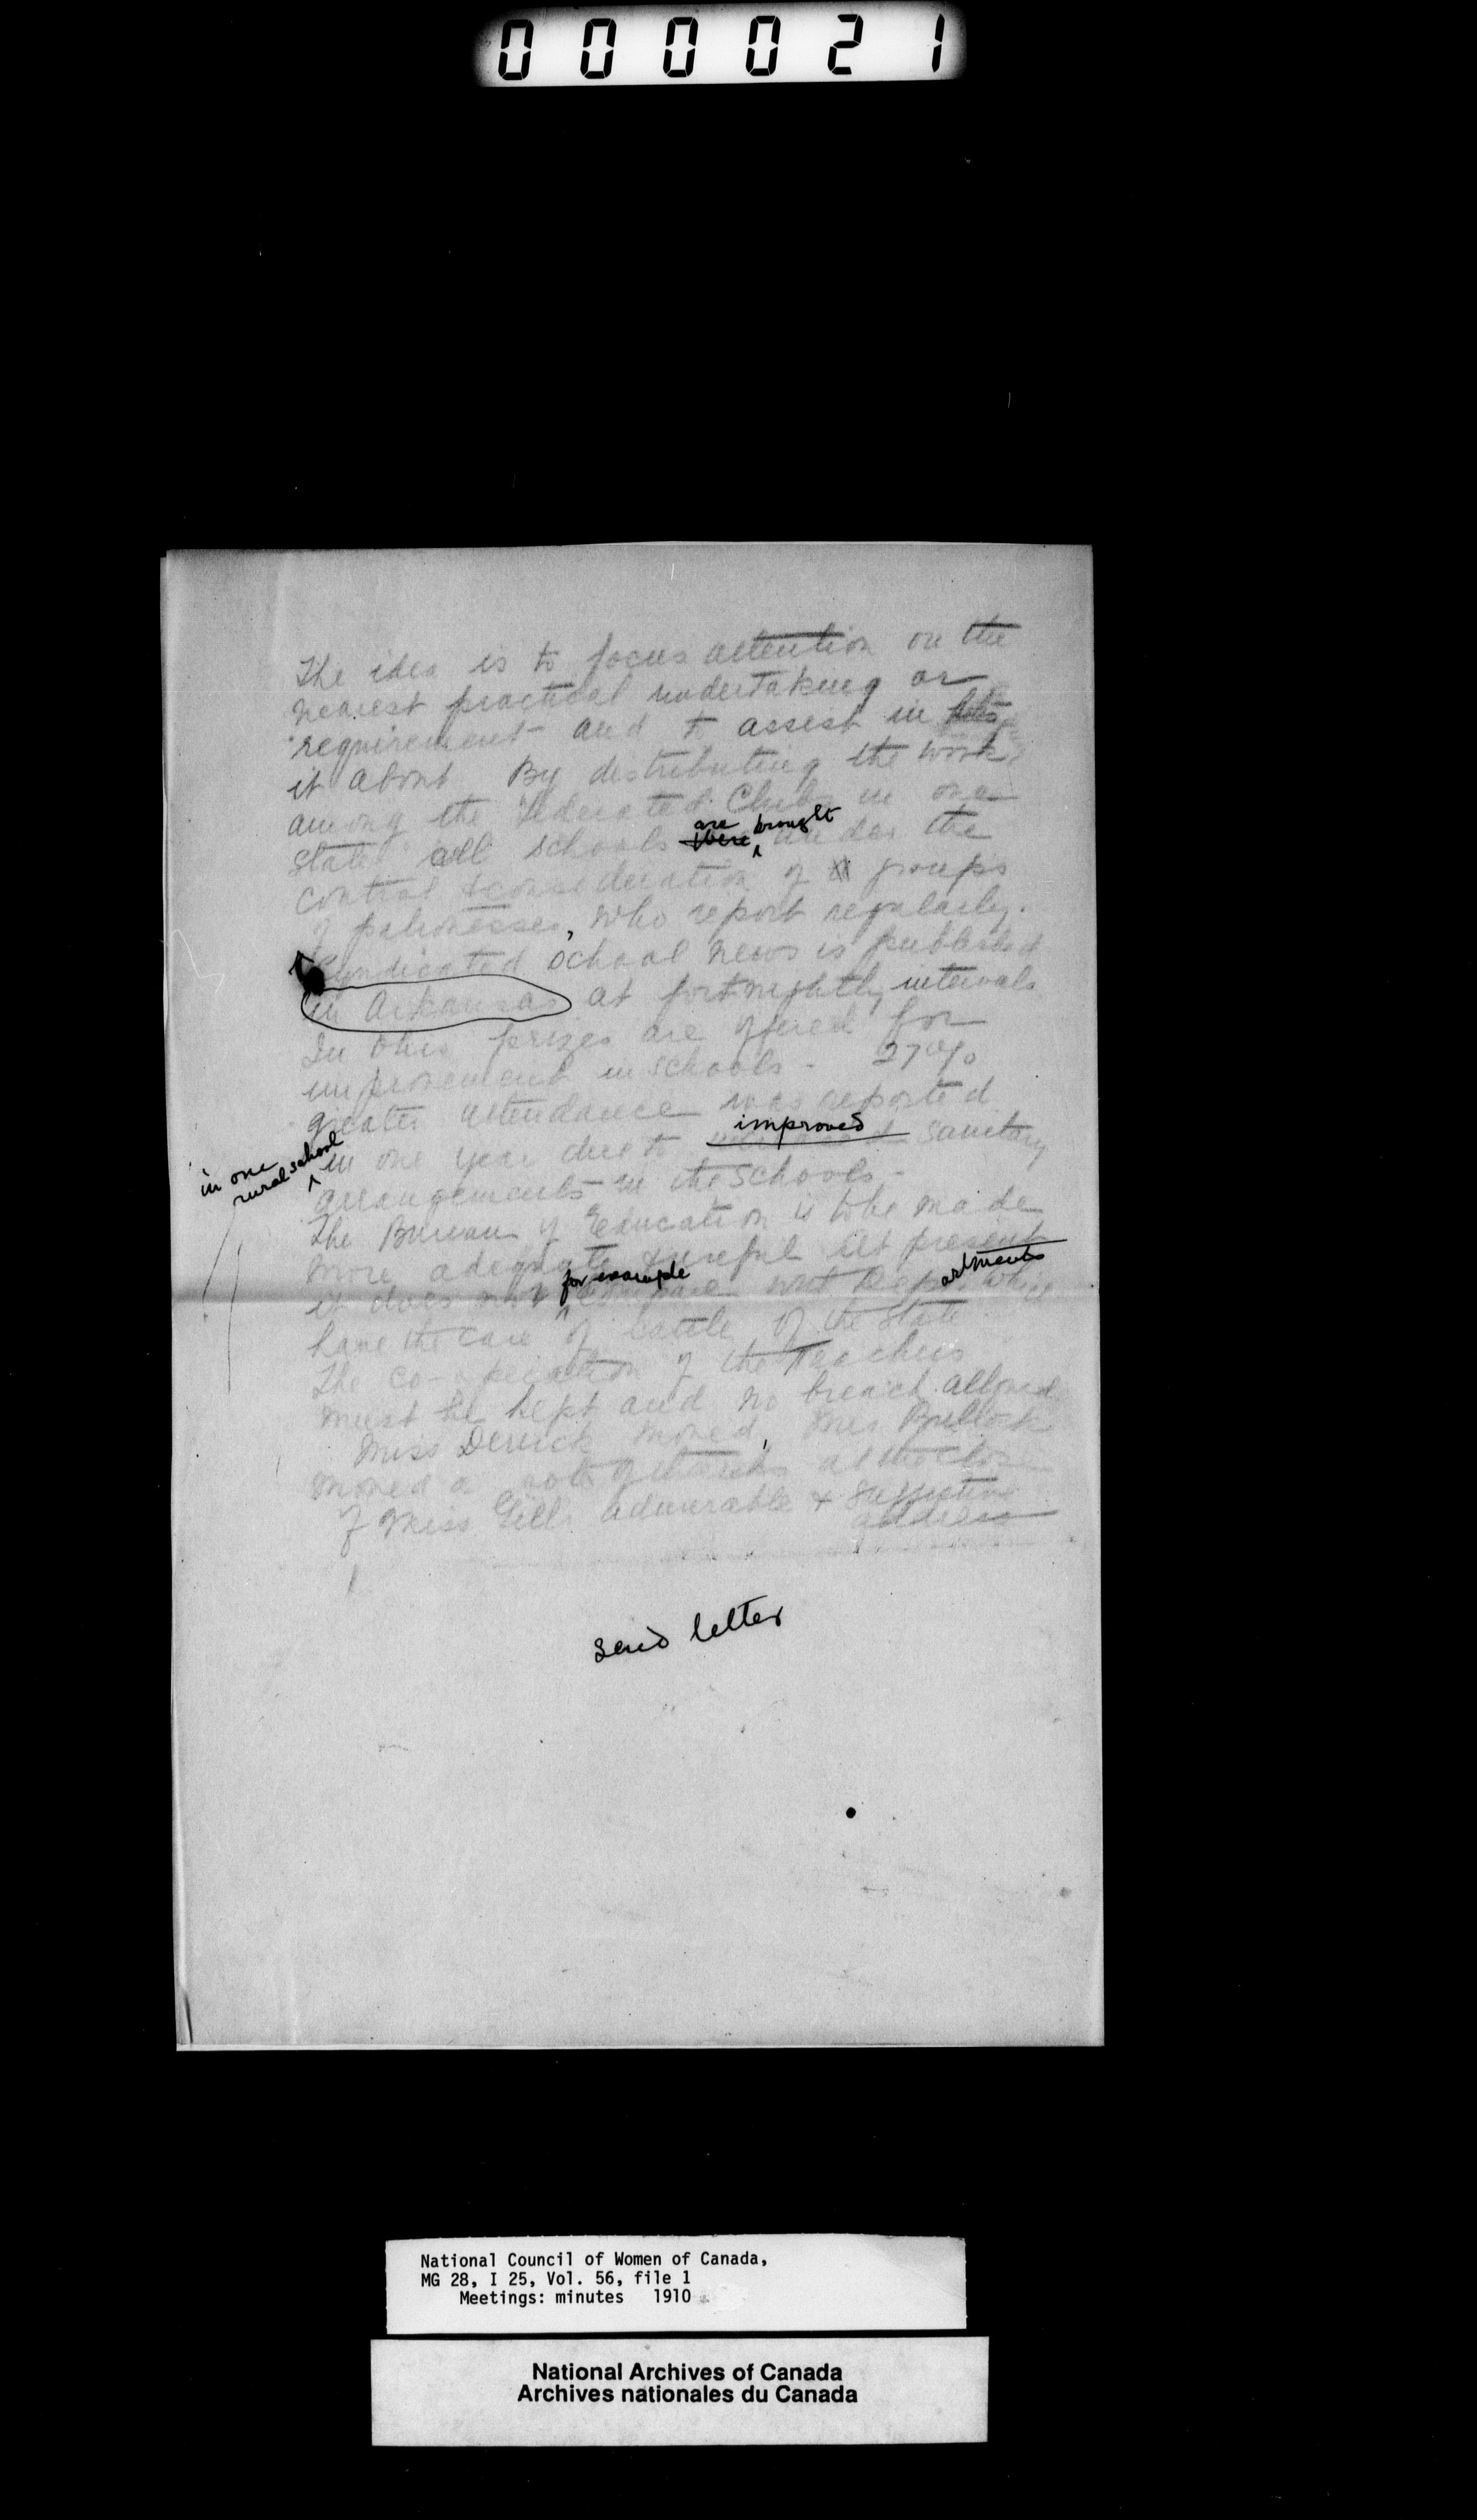 000021
The idea is to focus attention on the
nearest practical undertaking or
requirement and to assist in
it about By distributing the work
among the Federated Clubs in one
are brought
State all schools were under the
control & consideration of groups
of patronesses, who report regularly.
Syndicated school news is published
in Arkansas at fortnightly intervals
In Ohio prizes are offered for
improvement in schools - 27%
greater attendance was reported
improved
in one rural school
in one year due to sanitary
arrangements in the schools -
The Bureau of Education is to be made
more adequate & useful At present
for example artments
it does not compare with Dep which
have the care of cattle of the State
The co-operation of the teachers
must be kept and no breach allowed
Miss Derick moved, Mrs Bullock
moved a vote of thanks at the close
of Miss Gill's admirable & suggestive
address
send letter
National Council of Women of Canada,
MG 28, I 25, Vol. 56, file 1
Meetings: minutes 1910
National Archives of Canada
Archives nationales du Canada